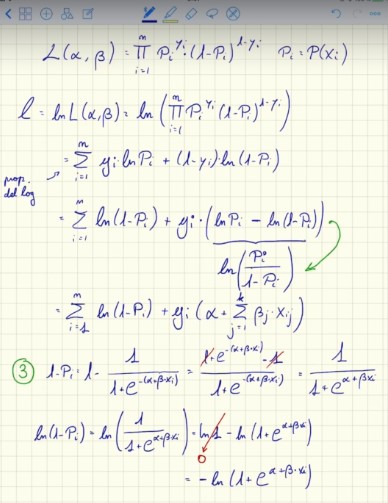 L(α, β) = ∏_{i=1}^{m} P_i^{y_i} (1-P_i)^{1-y_i}   P_i = P(x_i)
ℓ = ln L(α,β) = ln ( ∏_{i=1}^{m} P_i^{y_i} (1-P_i)^{1-y_i} )
prop. del log = ∑_{i=1}^{m} y_i·ln P_i + (1-y_i)·ln(1-P_i)
= ∑_{i=1}^{m} ln(1-P_i) + y_i·(ln P_i - ln(1-P_i))
ln( P_i / (1-P_i) )
= ∑_{i=1}^{m} ln(1-P_i) + y_i(α + ∑_{j=1}^{k} β_j·x_{ij})
③ 1-P_i = 1 - 1/(1+e^{-(α+β·x_i)}) = (1+e^{-(α+β·x_i)} - 1)/(1+e^{-(α+β·x_i)}) = 1/(1+e^{α+β·x_i})
ln(1-P_i) = ln( 1/(1+e^{α+β·x_i}) ) = ln 1 - ln(1+e^{α+β·x_i})
0
= -ln(1+e^{α+β·x_i})